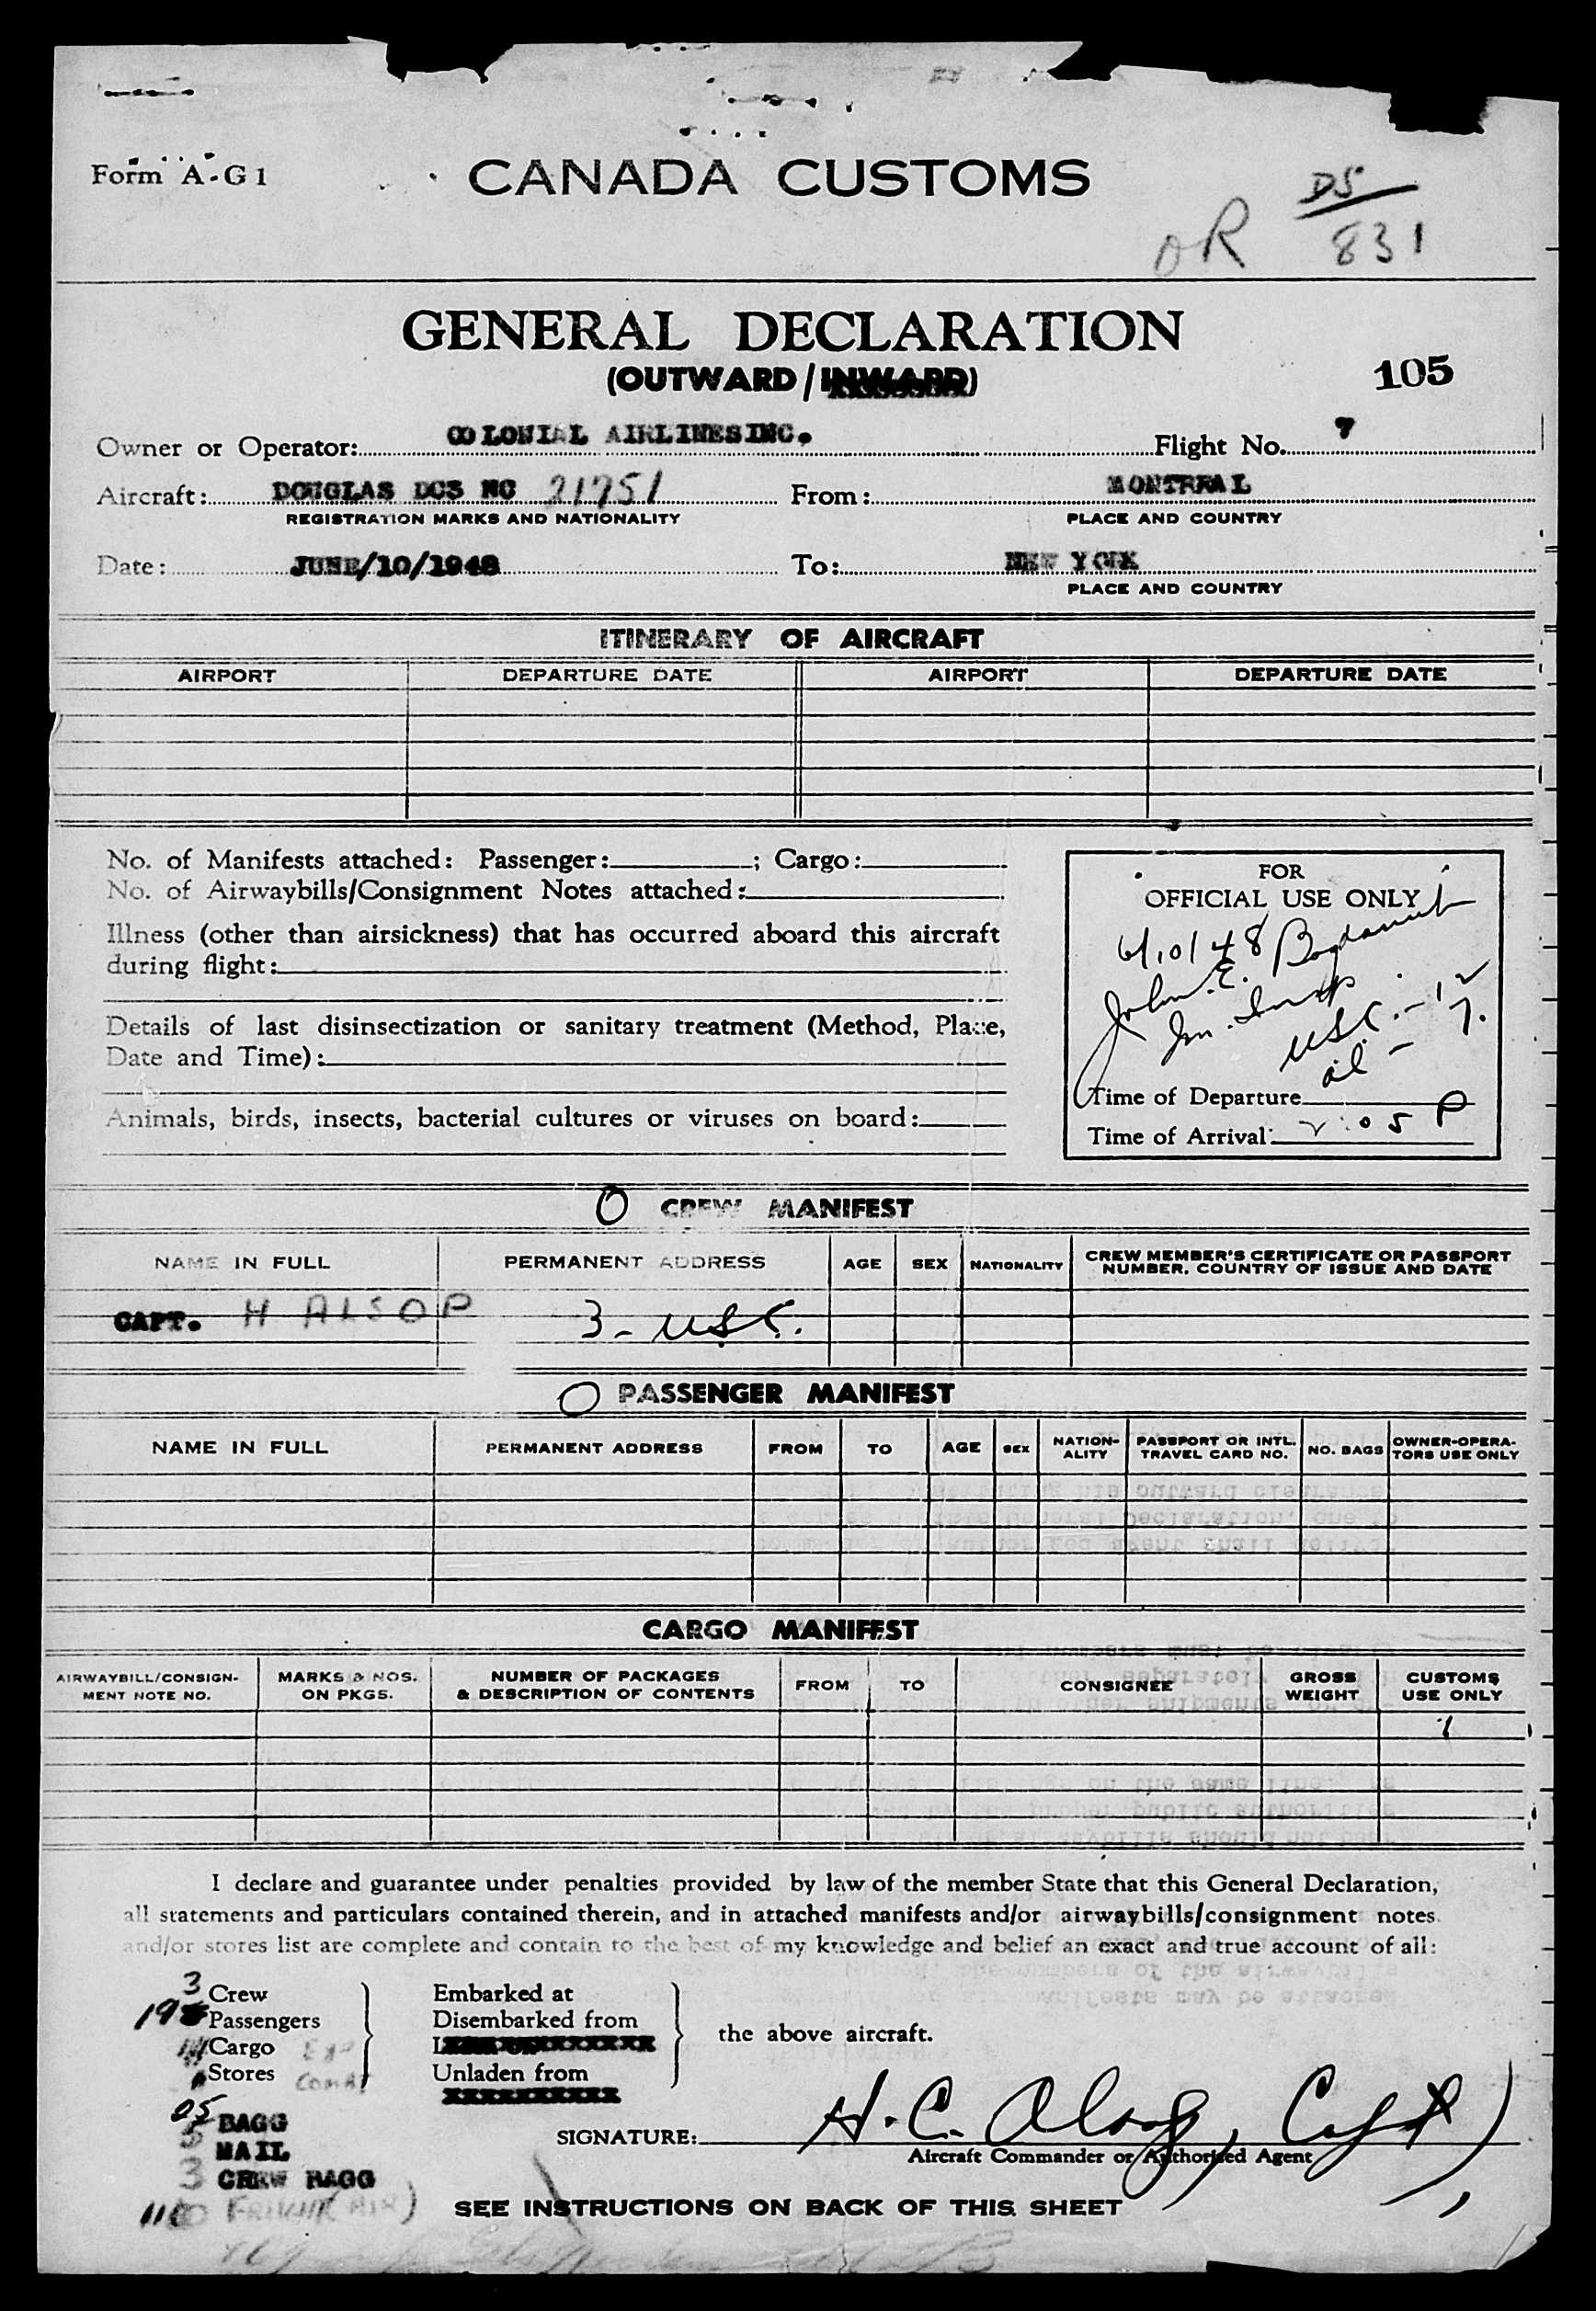 Form A-G1
CANADA CUSTOMS
DS
OR 831
GENERAL DECLARATION
(OUTWARD/INWARD)
105
Owner or Operator: COLONIAL AIRLINES INC. Flight No. 7
Aircraft: DOUGLAS DC3 NC 21751 From: MONTREAL
REGISTRATION MARKS AND NATIONALITY PLACE AND COUNTRY
Date: JUNE/10/1948 To: NEW YORK
PLACE AND COUNTRY
ITINERARY OF AIRCRAFT
AIRPORT DEPARTURE DATE AIRPORT DEPARTURE DATE
No. of Manifests attached: Passenger: ; Cargo:
No. of Airwaybills/Consignment Notes attached:
Illness (other than airsickness) that has occurred aboard this aircraft
during flight:
Details of last disinsectization or sanitary treatment (Method, Place,
Date and Time):
Animals, birds, insects, bacterial cultures or viruses on board:
FOR
OFFICIAL USE ONLY
6/10/48
John E.
Im. Insp
USC. - 12
al - 7.
Time of Departure
Time of Arrival: 2:05 P
CREW MANIFEST
NAME IN FULL PERMANENT ADDRESS AGE SEX NATIONALITY CREW MEMBER'S CERTIFICATE OR PASSPORT
NUMBER, COUNTRY OF ISSUE AND DATE
CAPT. H ALSOP 3 - USC.
PASSENGER MANIFEST
NAME IN FULL PERMANENT ADDRESS FROM TO AGE SEX NATION-
ALITY PASSPORT OR INTL.
TRAVEL CARD NO. NO. BAGS OWNER-OPERA-
TORS USE ONLY
CARGO MANIFEST
AIRWAYBILL/CONSIGN-
MENT NOTE NO. MARKS & NOS.
ON PKGS. NUMBER OF PACKAGES
& DESCRIPTION OF CONTENTS FROM TO CONSIGNEE GROSS
WEIGHT CUSTOMS
USE ONLY
I declare and guarantee under penalties provided by law of the member State that this General Declaration,
all statements and particulars contained therein, and in attached manifests and/or airwaybills/consignment notes
and/or stores list are complete and contain to the best of my knowledge and belief an exact and true account of all:
3 Crew
Passengers
Cargo EXP
Stores COMAT
Embarked at
Disembarked from
Unladen from
the above aircraft.
BAGG
MAIL
3 CREW BAGG
SIGNATURE: H. C. Alsop, Capt
Aircraft Commander or Authorised Agent
SEE INSTRUCTIONS ON BACK OF THIS SHEET